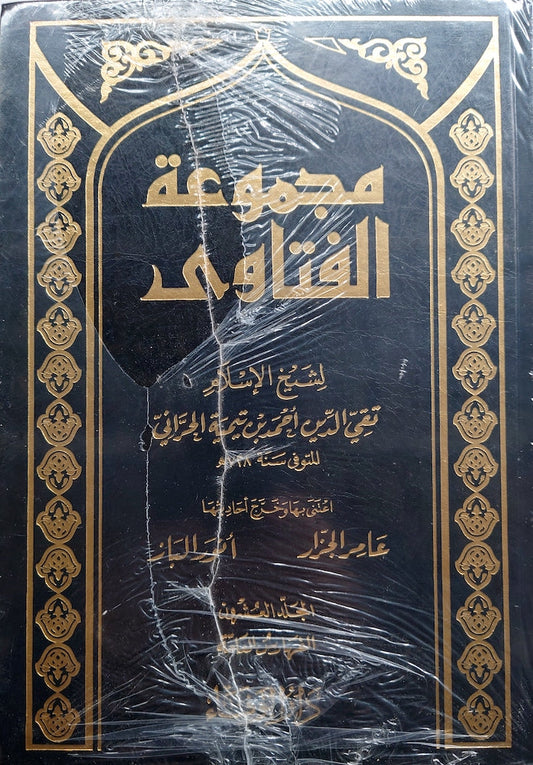 مجموعة
الفتاوى
لشيخ الإسلام
تقي الدين أحمد بن تيمية الحراني
المتوفى سنة
اعتنى بها وخرج أحاديثها
عامر الجزار أنور الباز
المجلد العشرون